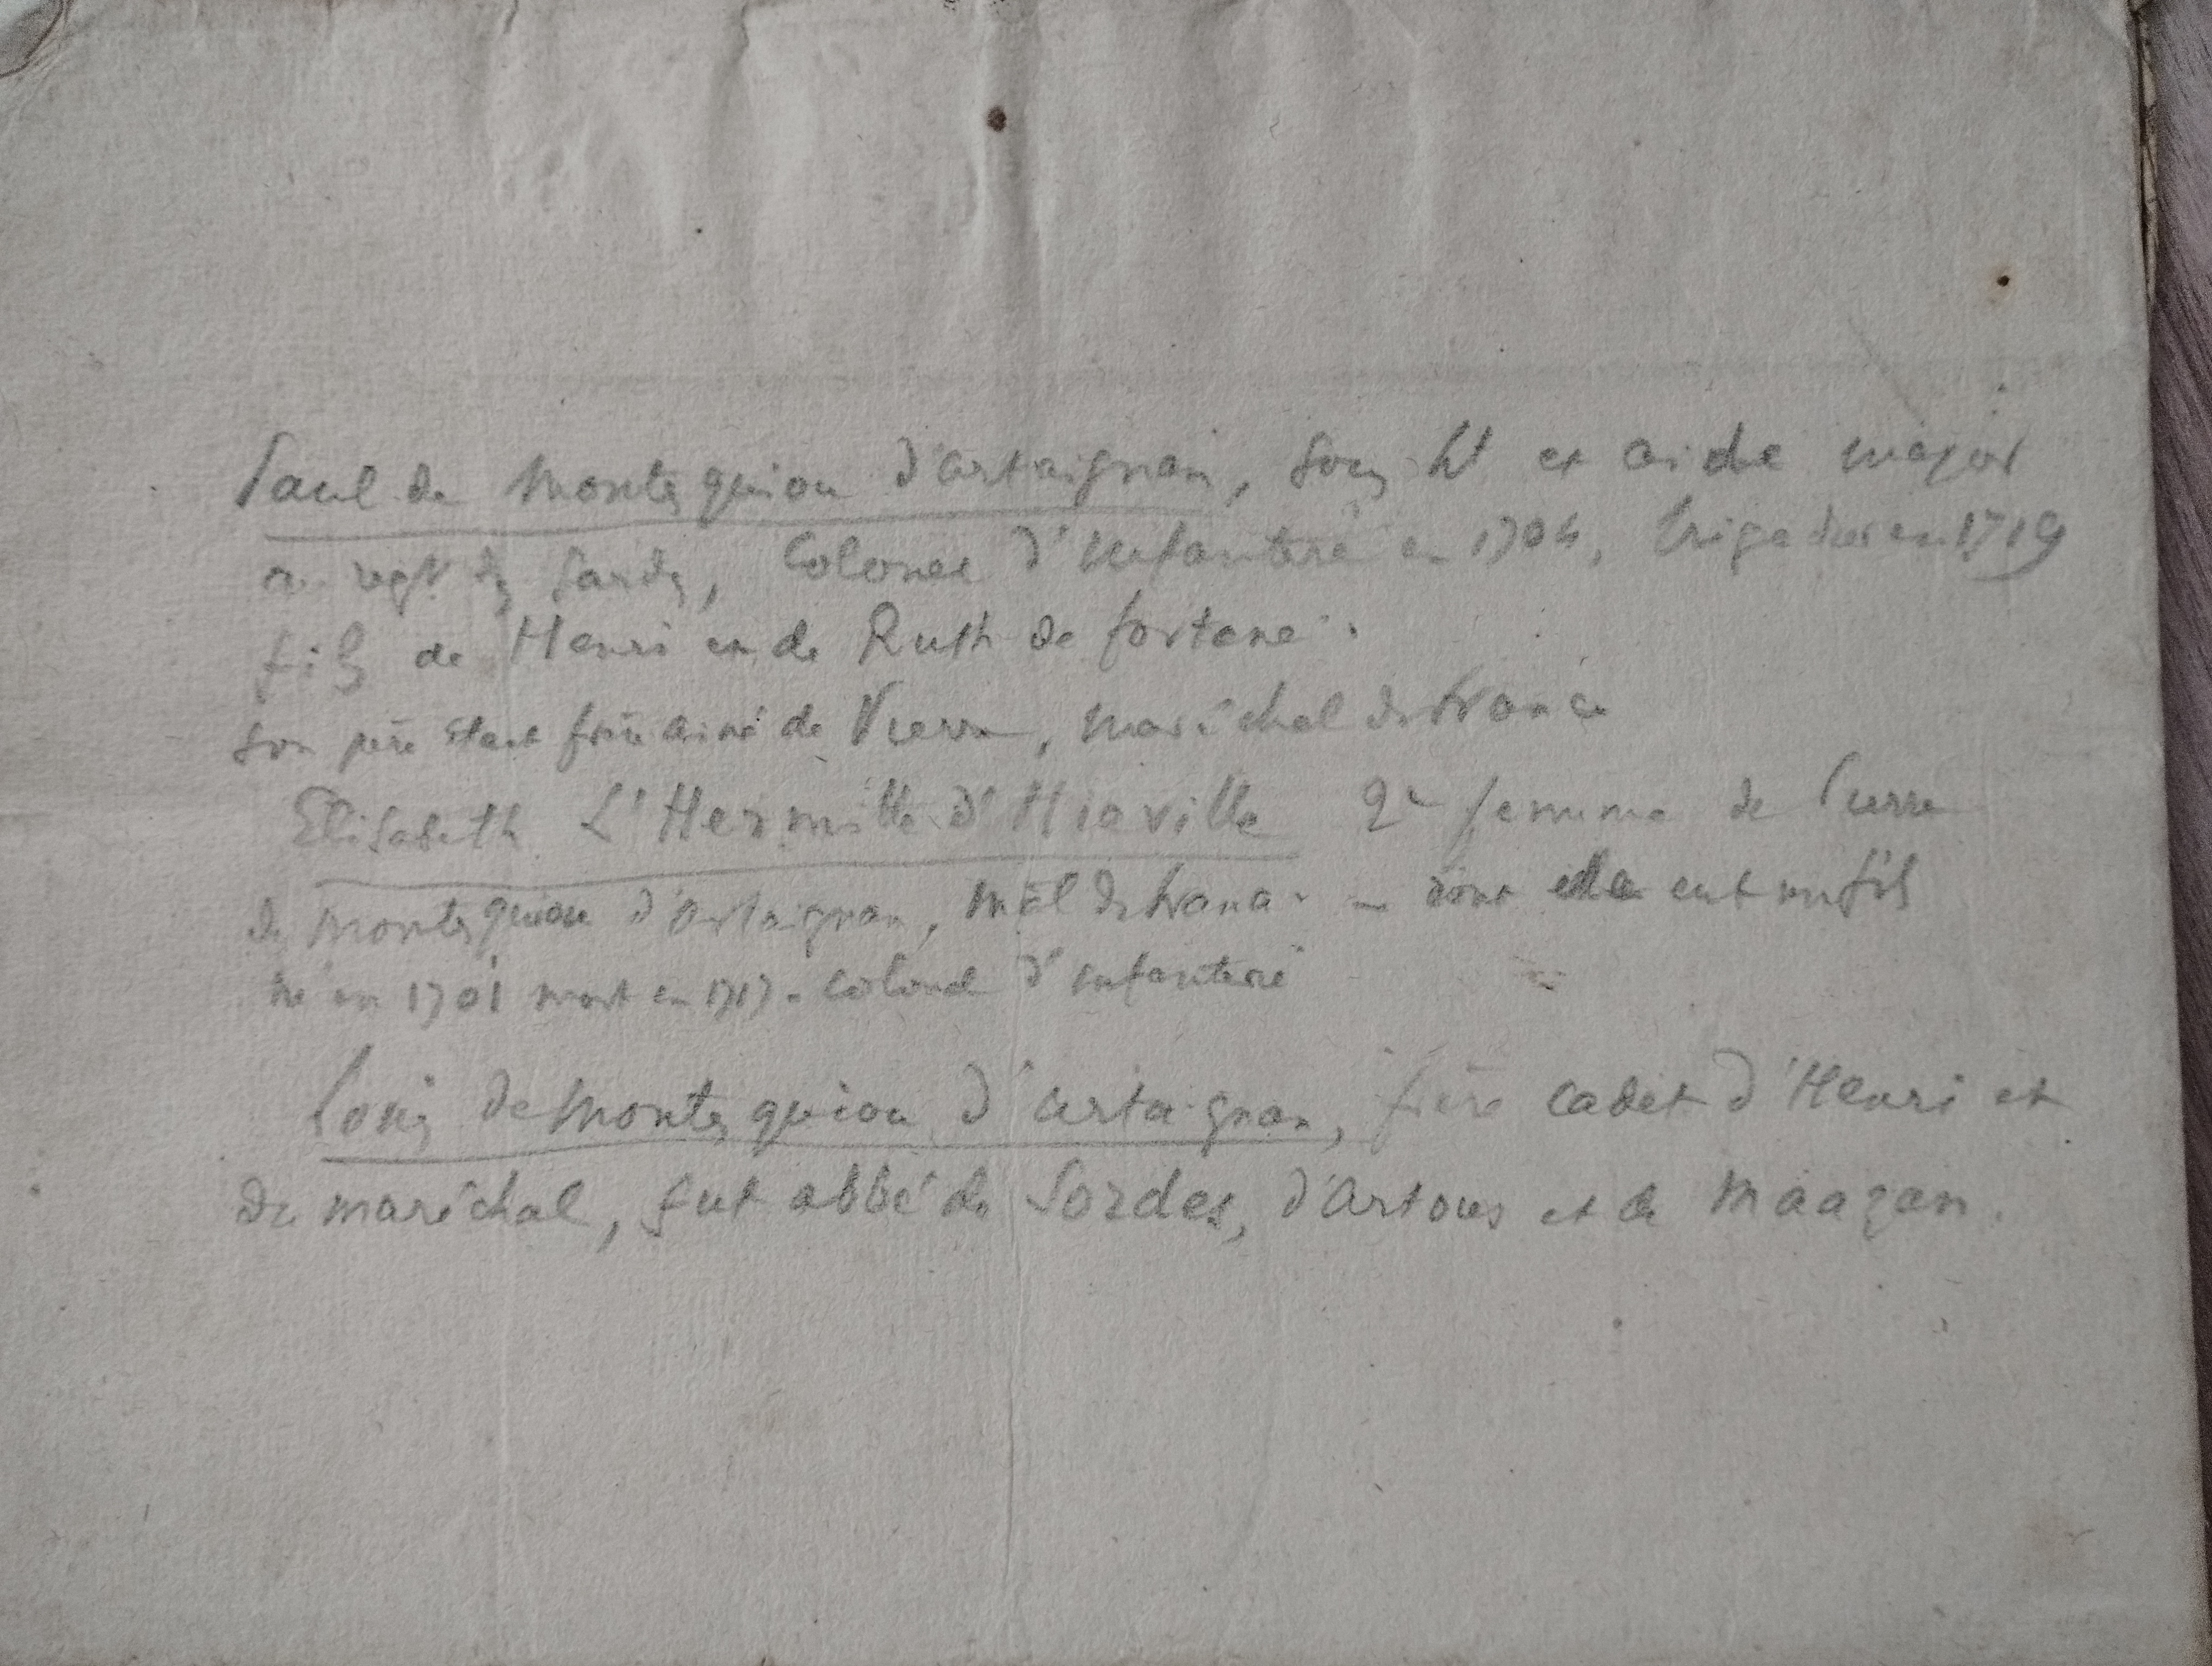 Paul de Montesquiou d'artaignan, sous Lt et aide major
au regt des gardes, Colonel d'infanterie en 1704, brigadier en 1719
fils de Henri et de Ruth de fortane.
son père étant frère ainé de Pierre, maréchal de france
Elisabeth L'Hermitte d'Hieville 2e femme de Pierre
de montesquiou d'artaignan, mal de france - dont elle eut un fils
né en 1701 mort en 1717 - colonel d'infanterie
Louis de Montesquiou d'artaignan, frère cadet d'Henri et
du maréchal, fut abbé de Sordes, d'artous et de Maazan.